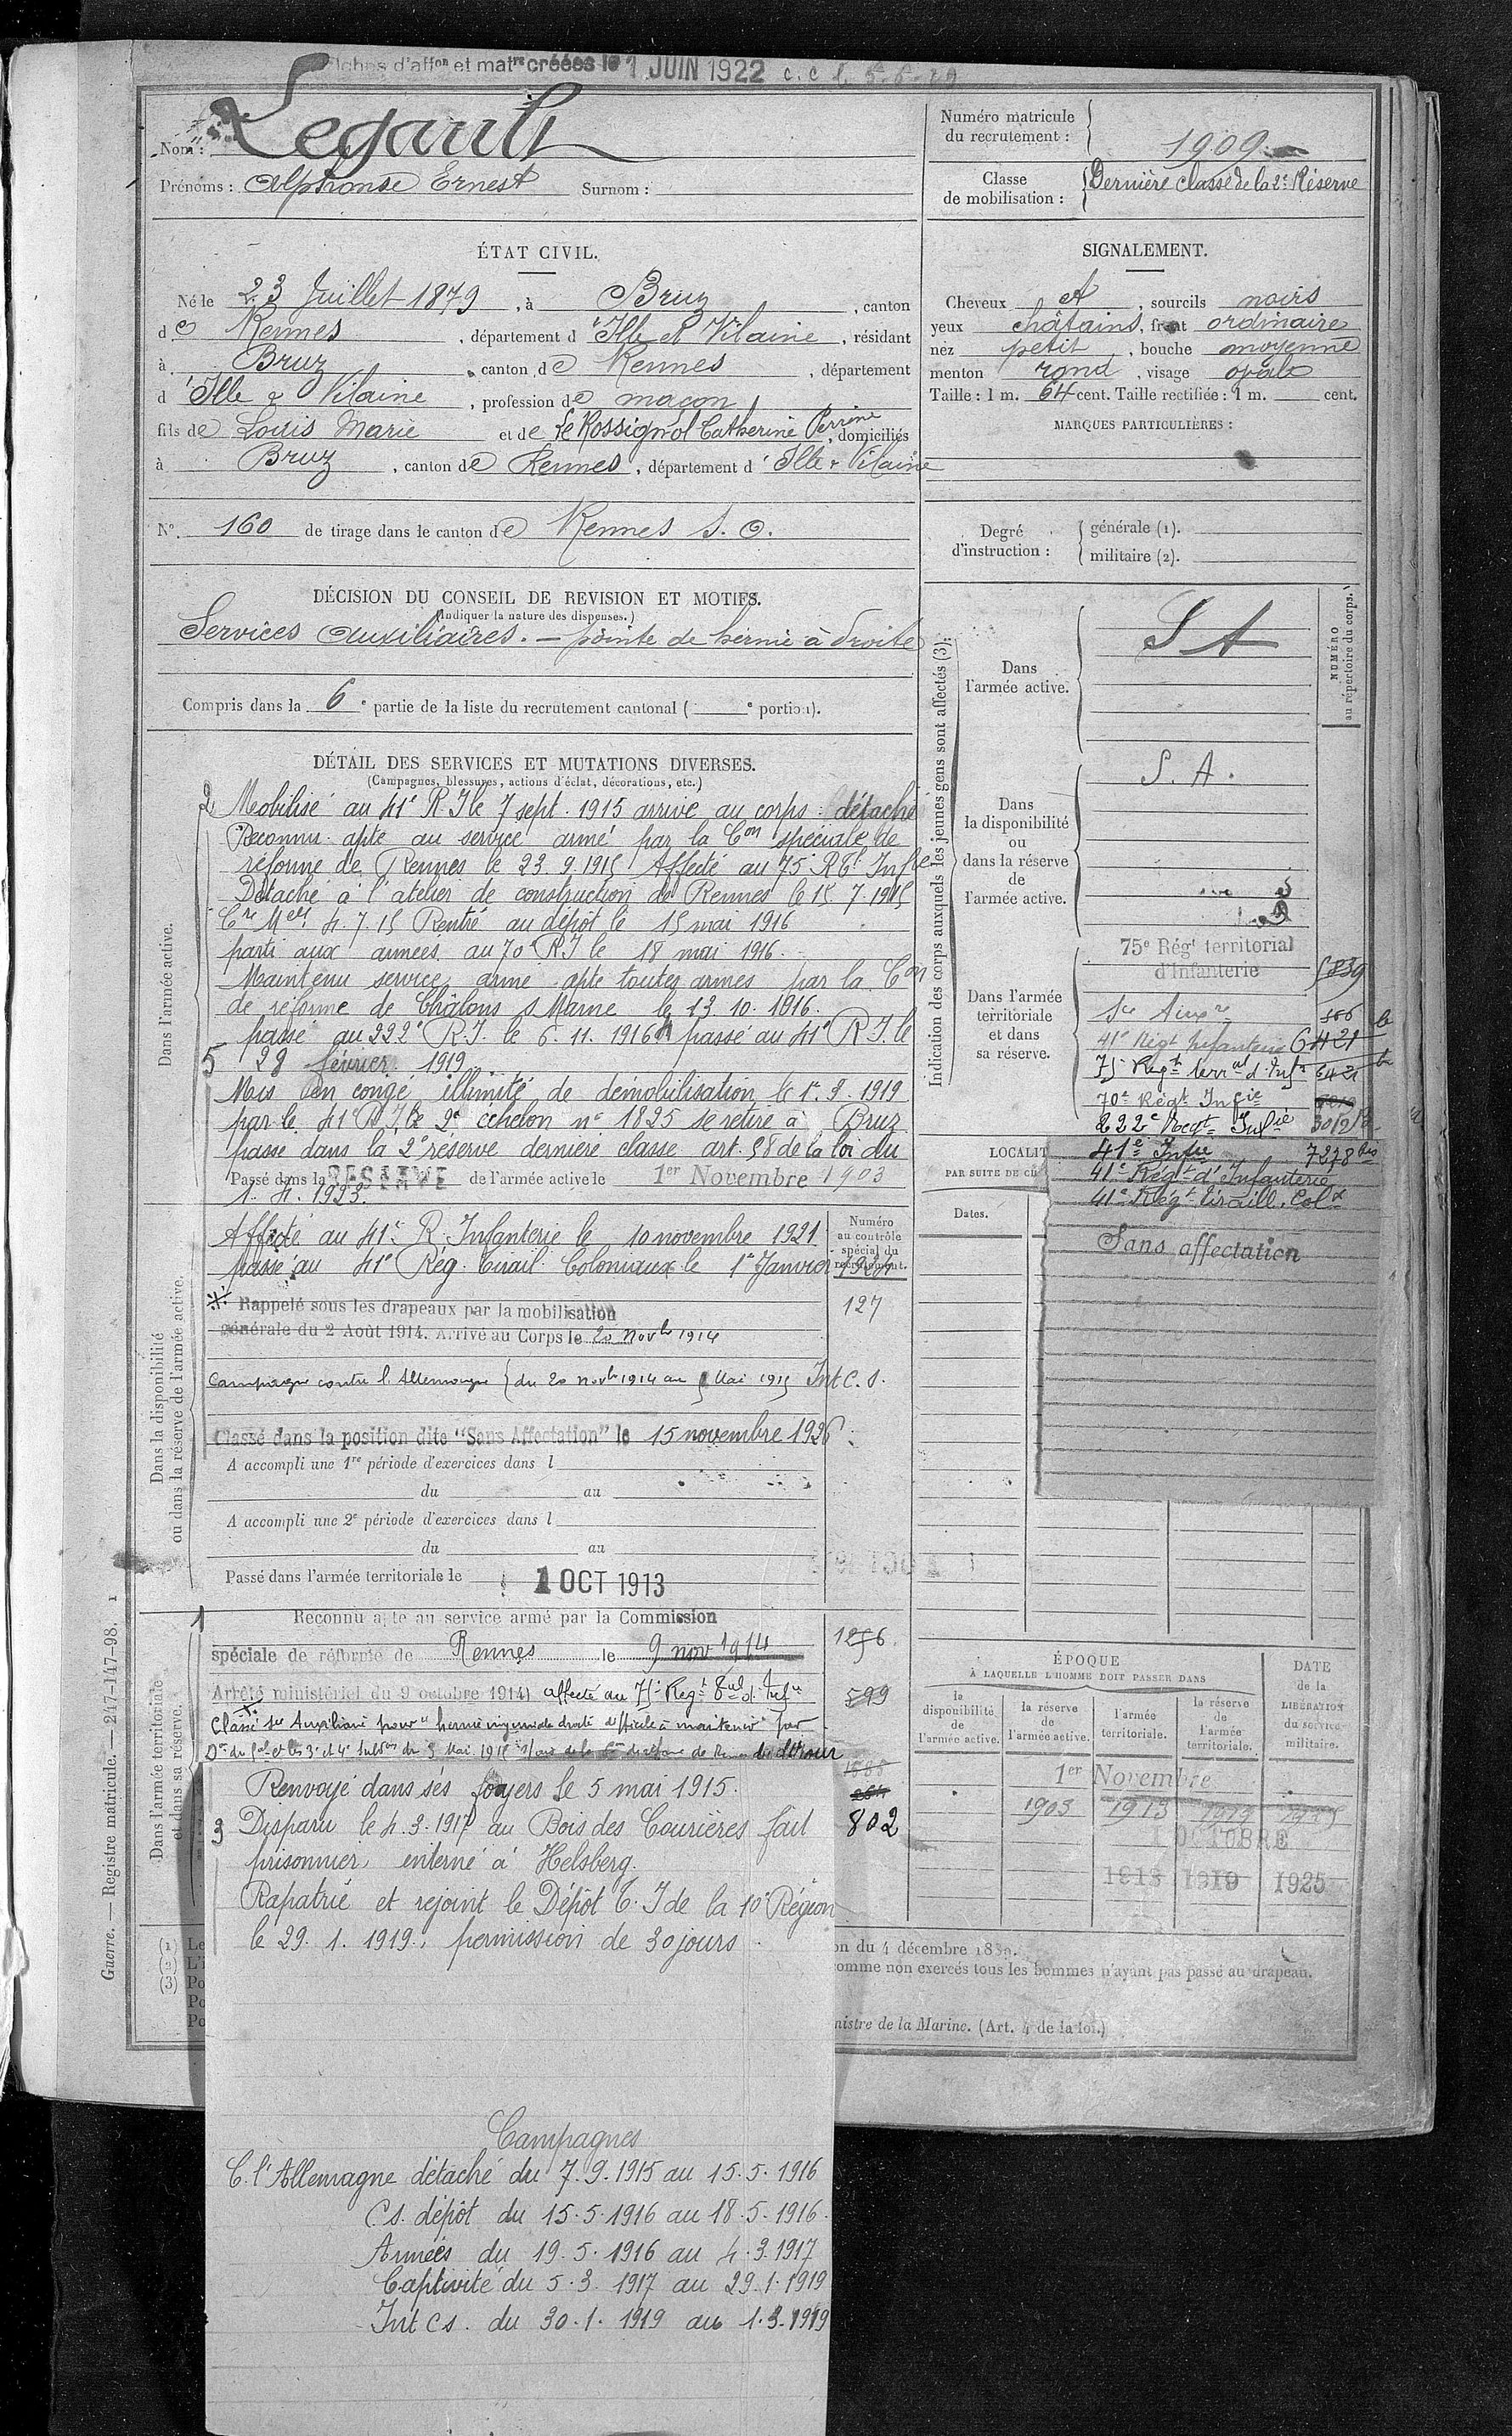 Fiches d'affon et matre créées le 1 JUIN 1922 c.c l. 5-6-29
Nom : Legault
Prénoms : Alphonse Ernest Surnom :
Numéro matricule
du recrutement : 1909
Classe
de mobilisation : Dernière classe de la 2e Réserve
ÉTAT CIVIL.
Né le 23 Juillet 1879, à Bruz, canton
de Rennes, département d'Ille et Vilaine, résidant
à Bruz, canton de Rennes, département
d'Ille & Vilaine, profession de maçon
fils de Louis Marie et de Le Rossignol Catherine Perrine, domiciliés
à Bruz, canton de Rennes, département d'Ille & Vilaine
N°. 160 de tirage dans le canton de Rennes S. O.
SIGNALEMENT.
Cheveux et, sourcils noirs
yeux châtains, front ordinaire
nez petit, bouche moyenne
menton rond, visage ovale
Taille : 1 m. 64 cent. Taille rectifiée : 1 m. cent.
MARQUES PARTICULIÈRES :
Degré
d'instruction :
générale (1).
militaire (2).
DÉCISION DU CONSEIL DE REVISION ET MOTIFS.
(Indiquer la nature des dispenses.)
Services auxiliaires. — pointe de hernie à droite
Compris dans la 6e partie de la liste du recrutement cantonal ( e portion).
DÉTAIL DES SERVICES ET MUTATIONS DIVERSES.
(Campagnes, blessures, actions d'éclat, décorations, etc.)
Dans l'armée active.
2 Mobilisé au 41e R. I le 7 sept. 1915 arrivé au corps : détaché
Reconnu apte au service armé par la Con spéciale de
réforme de Rennes le 23.9.1915 Affecté au 75e RGt Infie
Détaché à l'atelier de construction de Rennes le 15.7.1915
Cre Mlle 4.7.15 Rentré au dépôt le 15 mai 1916
parti aux armées au 70e RI le 18 mai 1916.
Maintenu service armé apte toutes armes par la Con
de réforme de Châlons s Marne le 13.10.1916.
passé au 222e R.I. le 6.11.1916 passé au 41e R.I. le
5 28 février 1919
Mis en congé illimité de démobilisation le 1er.3.1919
par le 41e R.I. le 2e échelon n° 1825 se retire à Bruz
passé dans la 2e réserve dernière classe art. 58 de la loi du
Passé dans la RÉSERVE de l'armée active le 1er Novembre 1903
1. 4. 1923.
Dans la disponibilité
ou dans la réserve de l'armée active.
Affecté au 41e R. Infanterie le 10 novembre 1921
passé au 41e Rég. Tirail. Coloniaux le 1er Janvier 1924
* Rappelé sous les drapeaux par la mobilisation
générale du 2 Août 1914. Arrivé au Corps le 20 Novbre 1914
Campagne contre l'Allemagne } du 20 novbre 1914 au 5 Mai 1915 Int C.S.
Classé dans la position dite "Sans Affectation" le 15 novembre 1926
A accompli une 1re période d'exercices dans l
du au
A accompli une 2e période d'exercices dans l
du au
Passé dans l'armée territoriale le 1 OCT 1913
Numéro
au contrôle
spécial du
recrutement.
127
1276
599
802
Dans l'armée territoriale
et dans sa réserve.
1 Reconnu apte au service armé par la Commission
spéciale de réforme de Rennes le 9 nov 1914
Arrêté ministériel du 9 octobre 1914) affecté au 75e Regt
Classé Sce Auxiliaire pour "hernie inguinale droite difficile à maintenir" par
Renvoyé dans ses foyers le 5 mai 1915.
3 Disparu le 4.3.1917 au Bois des Courières fait
prisonnier, interné à Helsberg.
Rapatrié et rejoint le Dépôt C. I de la 10e Région
le 29. 1. 1919., permission de 30 jours.
Campagnes
C. l'Allemagne détaché du 7.9.1915 au 15.5.1916
Cs. dépôt du 15.5.1916 au 18.5.1916.
Armées du 19.5.1916 au 4.3.1917
Captivité du 5.3.1917 au 29.1.1919
Int Cs. du 30.1.1919 au 1.3.1919
Indication des corps auxquels les jeunes gens sont affectés (3).
NUMÉRO
au répertoire du corps.
Dans
l'armée active.
S A
Dans
la disponibilité
ou
dans la réserve
de
l'armée active.
S. A.
Dans l'armée
territoriale
et dans
sa réserve.
75e Régt territorial
d'Infanterie
Sce Auxre
41e Régt Infanterie 6421
75e Regt terral d'Infie 6421
70e Régt Infie
222e Regt Infie
41e Infie 7278 bis
41e Régt d'Infanterie
41e Régt tiraill. Colx
Sans affectation
LOCALIT
PAR SUITE DE CH
Dates.
ÉPOQUE
À LAQUELLE L'HOMME DOIT PASSER DANS
la
disponibilité
de
l'armée active.
la réserve
de
l'armée active.
l'armée
territoriale.
la réserve
de
l'armée
territoriale.
DATE
de la
LIBÉRATION
du service
militaire.
1er Novembre
1903 1913 1919 1925
1 OCTOBRE
1913 1919 1925
on du 4 décembre 1889.
omme non exercés tous les hommes n'ayant pas passé au drapeau.
nistre de la Marine. (Art. 4 de la loi.)
(1) Le
(2) L'i
(3) Po
Po
Po
Guerre. — Registre matricule. — 247-147-98. 1